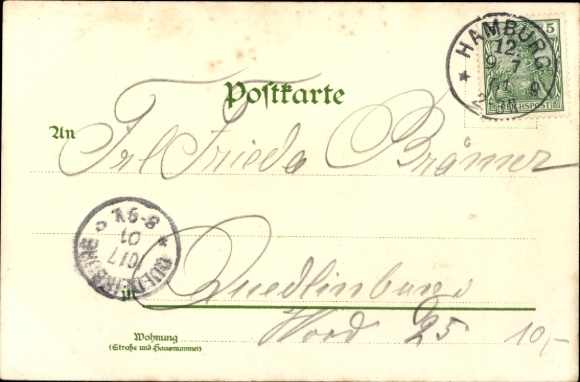 HAMBURG
12.
9 7
5
REICHSPOST
Postkarte
An
Frl Frieda Brämer
8-9V.
01
10/7
in Quedlinburg
Word 25 10,-
Wohnung
(Straße und Hausnummer)